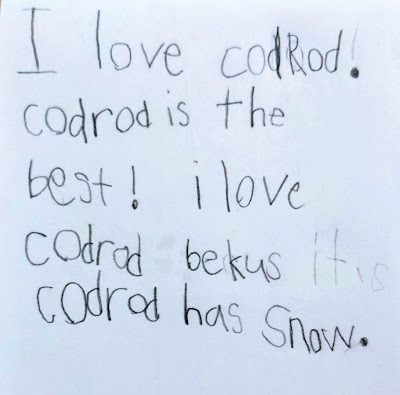 I love codRod!
codrod is the
best! i love
codrod bekus it is
codrod has snow.